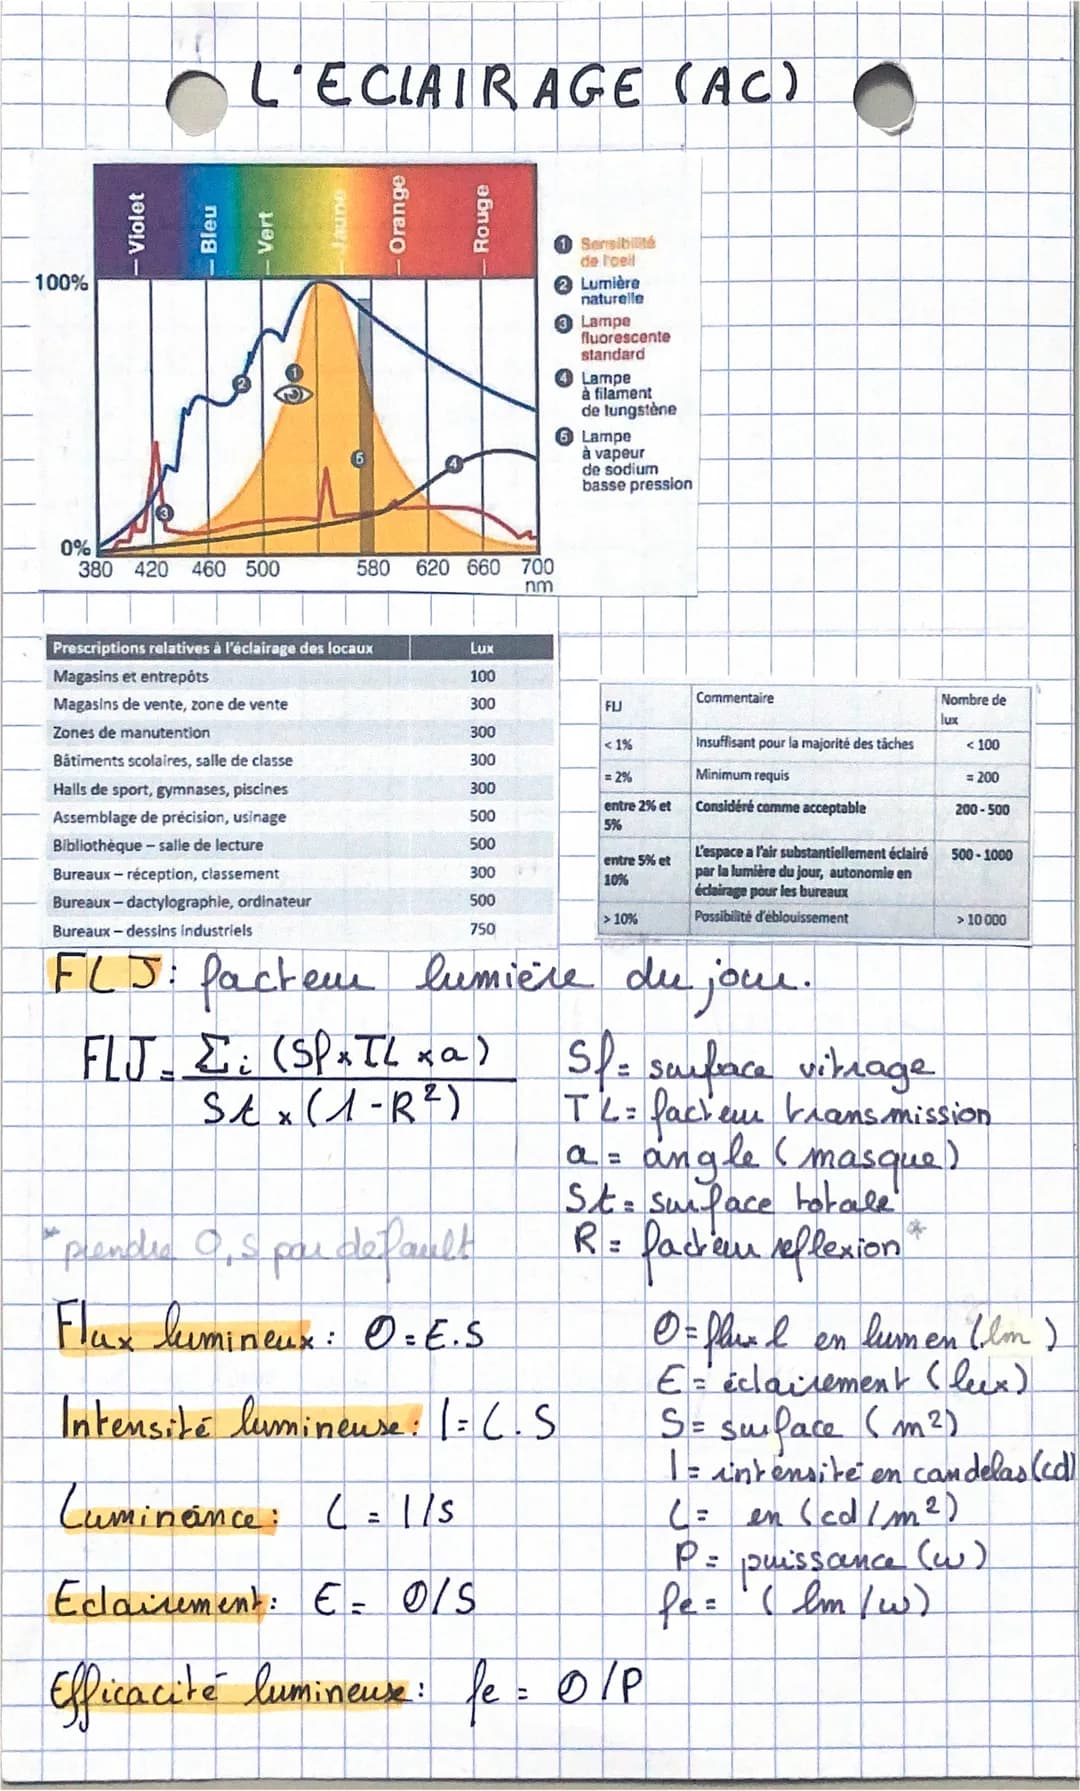 L'ECLAIRAGE (AC)
Violet
Bleu
Vert
Jaune
Orange
Rouge
100%
0%
380 420 460 500 580 620 660 700
nm
1 Sensibilité
de l'oeil
2 Lumière
naturelle
3 Lampe
fluorescente
standard
4 Lampe
à filament
de tungstène
5 Lampe
à vapeur
de sodium
basse pression
2
1
3
5
4
Prescriptions relatives à l'éclairage des locaux Lux
Magasins et entrepôts 100
Magasins de vente, zone de vente 300
Zones de manutention 300
Bâtiments scolaires, salle de classe 300
Halls de sport, gymnases, piscines 300
Assemblage de précision, usinage 500
Bibliothèque – salle de lecture 500
Bureaux – réception, classement 300
Bureaux – dactylographie, ordinateur 500
Bureaux – dessins industriels 750
FLJ Commentaire Nombre de
lux
< 1% Insuffisant pour la majorité des tâches < 100
= 2% Minimum requis = 200
entre 2% et Considéré comme acceptable 200 - 500
5%
entre 5% et L'espace a l'air substantiellement éclairé 500 - 1000
10% par la lumière du jour, autonomie en
éclairage pour les bureaux
> 10% Possibilité d'éblouissement > 10 000
FLJ: facteur lumière du jour.
FLJ = Σi (Sf x TL x a)
St x (1 - R²)
Sf = surface vitrage
TL = facteur transmission
a = angle (masque)
St = surface totale
R = facteur reflexion *
* prendre 0,5 par default
Flux lumineux: Ø = E.S
Ø = flux l en lumen (lm)
E = éclairement (lux)
Intensité lumineuse: I = L.S
S = surface (m²)
I = intensité en candelas (cd)
Luminance: L = I/S
L = en (cd/m²)
P = puissance (w)
Eclairement: E = Ø/S
fe = (lm/w)
Efficacité lumineuse: fe = Ø/P